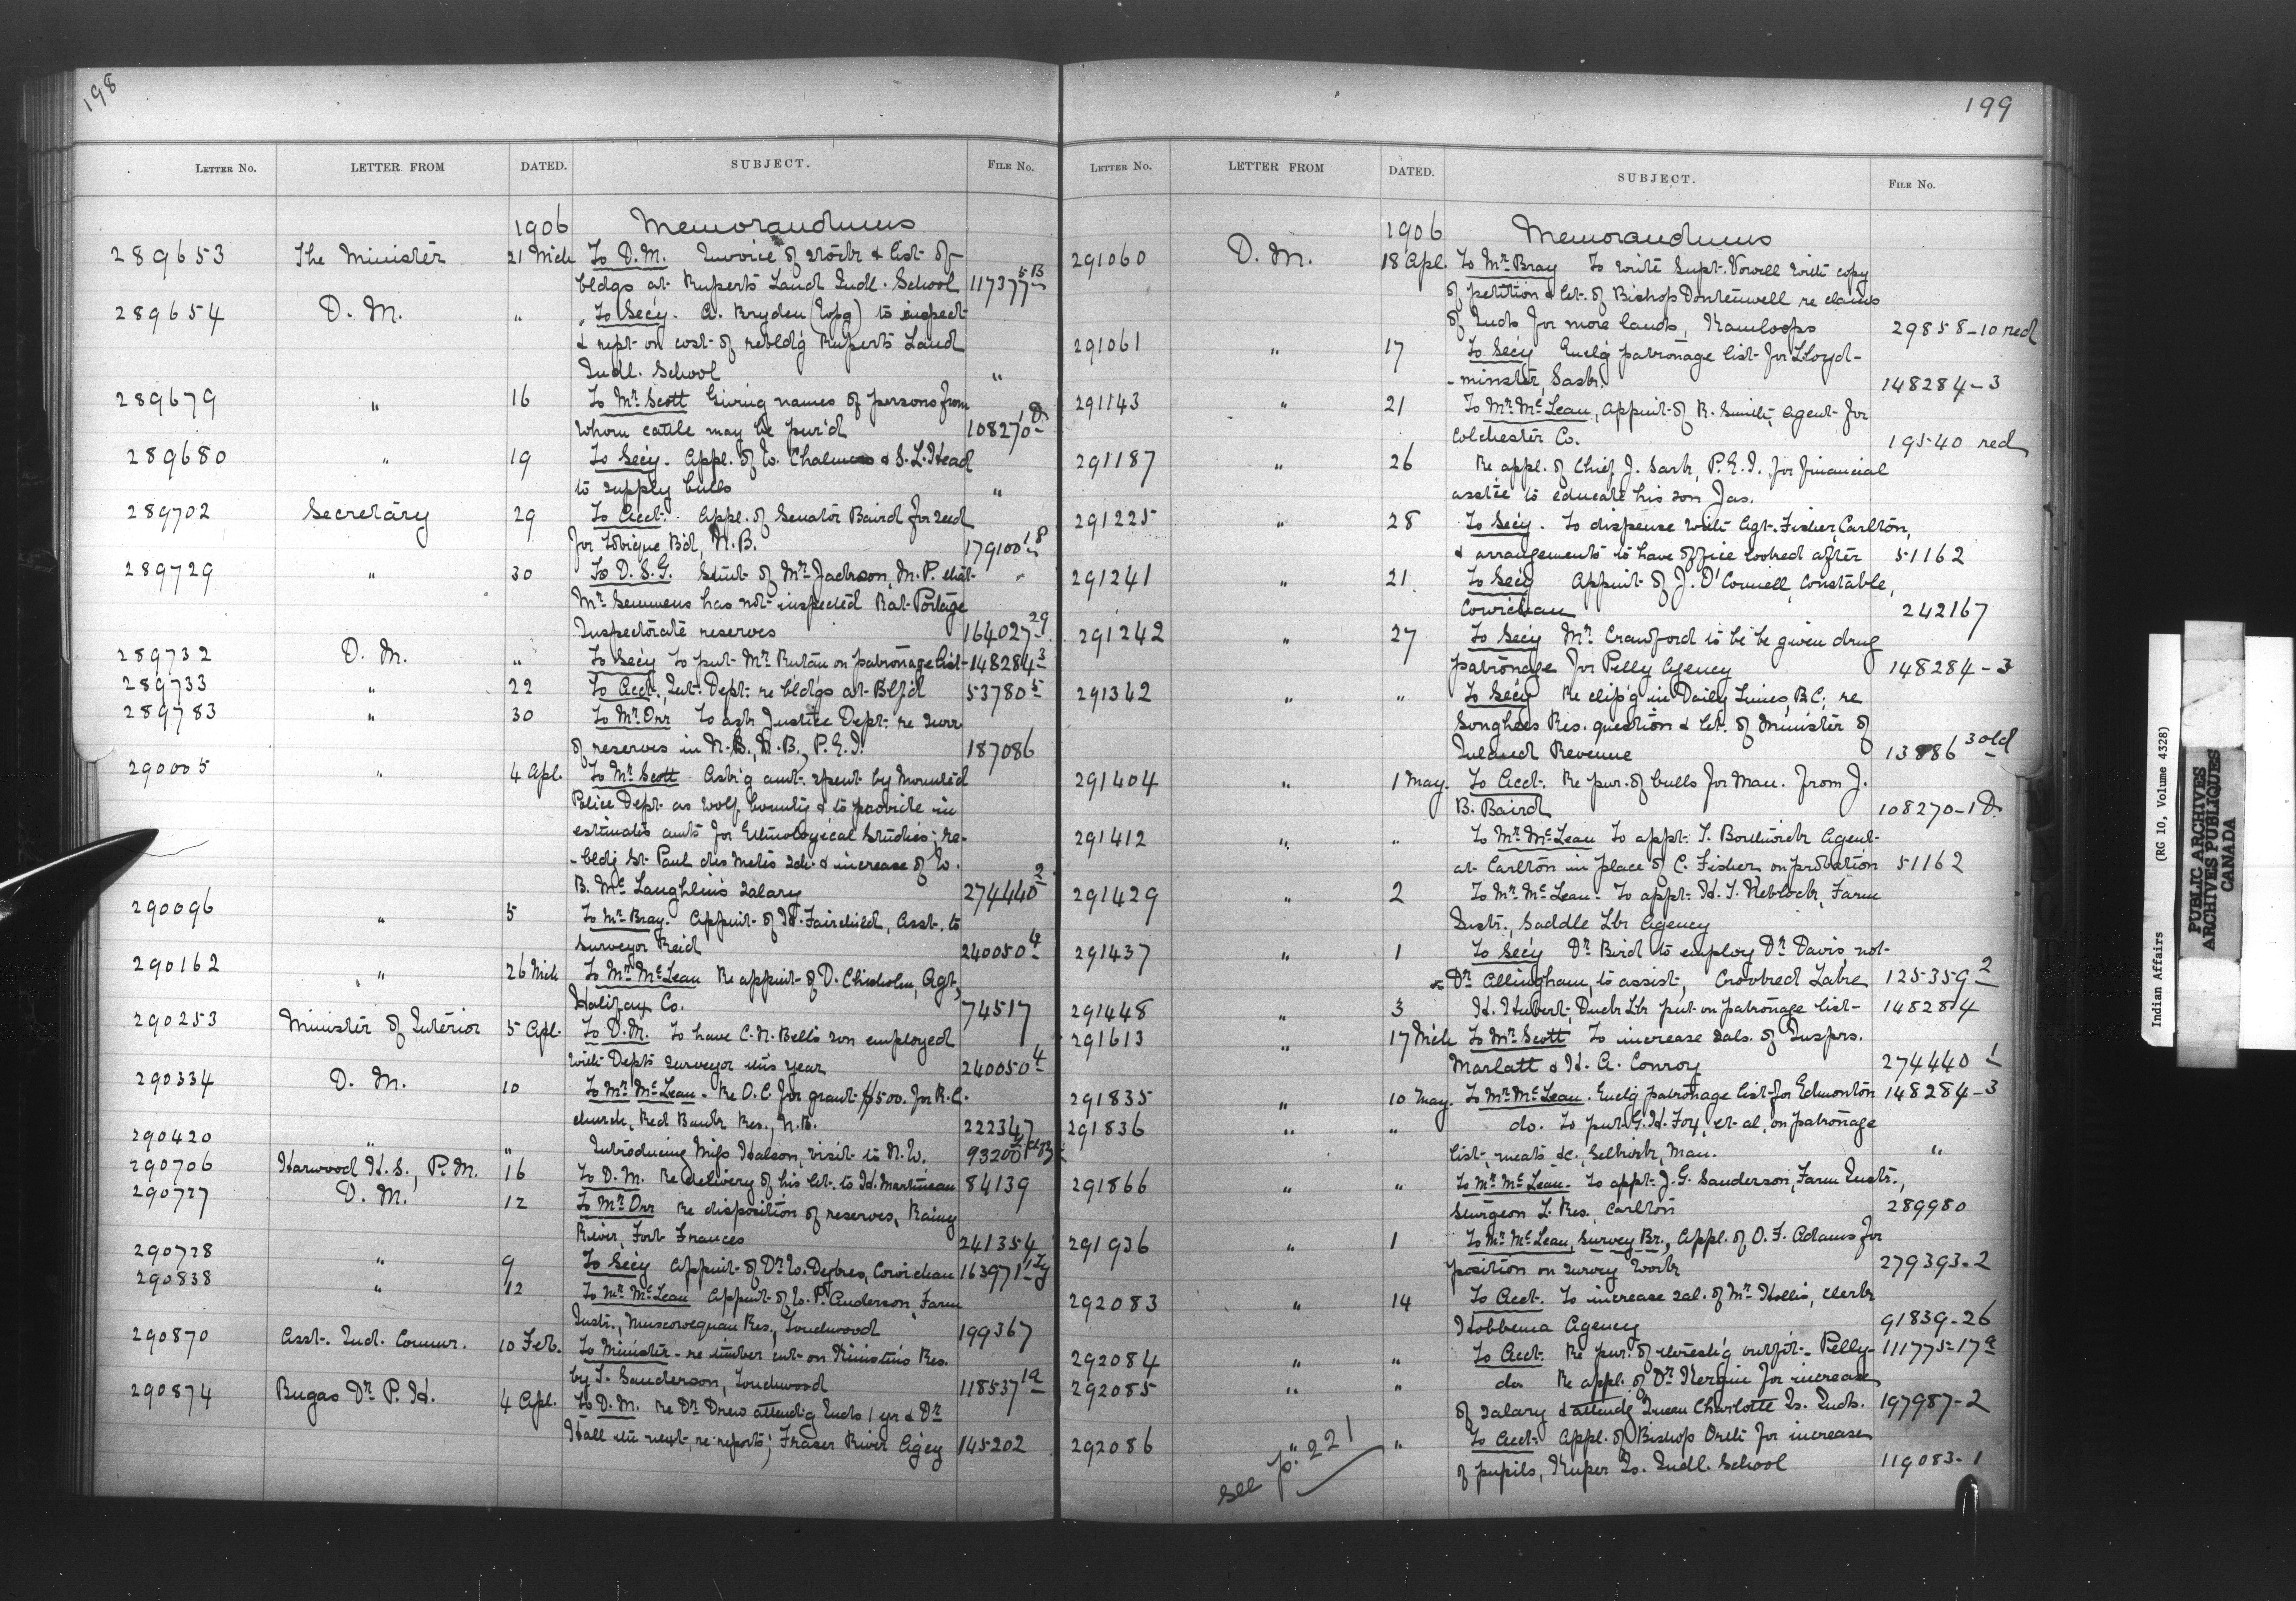 198
LETTER NO. LETTER FROM DATED. SUBJECT. FILE NO.
1906 Memorandums
289653 The Minister 21 Mch To D.M. Invoice of stock & list of
bldgs at Ruperts Land Indl. School 117377-5B
289654 D.M. " To Secy. A. Bryden (Wpg) to inspect
& rept on cost of rebldg Ruperts Land
Indl. School "
289679 " 16 To Mr. Scott Giving names of persons from
whom cattle may be pur'd 108270-1D
289680 " 19 To Secy. Appl. of W. Chalmers & S.L. Head
to supply bulls "
289702 Secretary 29 To Acct. Appl. of Senator Baird for seed
for Tobique Bd, N.B. 179100-18
289729 " 30 To D.S.G. Stmt of Mr. Jackson, M.P. that
Mr Semmens has not inspected Rat Portage
Inspectorate reserves 164027-29
289732 D.M. " To Secy to put Mr. Rutan on patronage list 148284-3
289733 " 22 To Acct., Int. Dept. re bldgs at Blfd 53780-5
289783 " 30 To Mr. Orr To ask Justice Dept. re surr
of reserves in N.B., P.E.I. 187086
290005 " 4 Apl. To Mr Scott Ask'g amt. spent by Mounted
Police Dept. as wolf bounty & to provide in
estimates amts for Ethnological Studies; re-
-bldg St. Paul des Metis sch. & increase of W.
B. McLaughlin's salary 274440-2
290096 " 5 To Mr. Bray. Appmt. of H. Fairchild, Asst. to
Surveyor Reid 240050-4
290162 " 26 Mch To Mr. McLean Re appmt. of D. Chisholm, Agt,
Halifax Co. 74517
290253 Minister of Interior 5 Apl. To D.M. To have C.N. Bell's son employed
with Depts surveyor this year 240050-4
290334 D.M. 10 To Mr. McLean. Re O.C. for grant $500. for R.C.
church, Red Bank Res., N.B. 222347
290420 " " Introducing Miss Halson, visit to N.W. 93200
290706 Harwood H.S., P.M. 16 To D.M. Re delivery of his let. to H. Martineau 84139
290727 D.M. 12 To Mr. Orr re disposition of reserves, Rainy
River, Fort Frances 241354
290728 " 9 To Secy Appmt of Dr. W. Dykes, Cowichan 163971
290838 " 12 To Mr. McLean Appmt. of W.P. Anderson, Farm
Instr., Muscowequan Res., Touchwood 199367
290870 Asst. Ind. Commr. 10 Feb. To Minister - re timber cut on Res.
by T. Sanderson, Touchwood 118537-1a
290874 Bugas Dr. P.H. 4 Apl. To D.M. Re Dr Drew attend'g Inds 1 yr & Dr
Hall the next, re reports; Fraser River Agcy 145202
199
LETTER NO. LETTER FROM DATED. SUBJECT. FILE NO.
1906 Memorandums
291060 D.M. 18 Apl. To Mr. Bray To write Supt. Vowell with copy
of petition & let. of Bishop Dontenwell re claims
of Inds for more lands, Kamloops 29858-10 red
291061 " 17 To Secy Enclg patronage list for Lloyd-
-minster, Sask. 148284-3
291143 " 21 To Mr. McLean, Appmt. of R. Smith, Agent for
Colchester Co. 19540 red
291187 " 26 Re appl. of Chief J. Sark, P.E.I. for financial
asstce to educate his son Jas.
291225 " 28 To Secy. To dispense with Agt. Fisher, Carlton,
& arrangements to have office looked after 51162
291241 " 21 To Secy Appmt of J. O'Connell, Constable,
Cowichan 242167
291242 " 27 To Secy Mr. Crawford to be be given drug
patronage for Pelly Agency 148284-3
291342 " " To Secy Re clip'g in Daily Times, B.C. re
Songhees Res. question & let. of Minister of
Inland Revenue 13886-3 old
291404 " 1 May. To Acct. Re pur. of bulls for Man. from J.
B. Baird 108270-1D.
291412 " " To Mr. McLean To appt. T. Borthwick Agent
at Carlton in place of C. Fisher, on probation 51162
291429 " 2 To Mr. McLean. To appt. H.T. Reblock, Farm
Instr., Saddle Lk Agency
291437 " 1 To Secy Dr. Bird to employ Dr. Davis, not
Dr Allingham, to assist, Crooked Lake 125359-2
291448 " 3 H. Hubert, Duck Lk put on patronage list 148284
291613 " 17 Mch To Mr. Scott To increase sals. of Insprs.
Marlatt & H.A. Conroy 274440-1
291835 " 10 May. To Mr. McLean. Enclg patronage list for Edmonton 148284-3
291836 " " do. To put G.H. Fox, et al, on patronage
list, meats &c, Selkirk, Man. "
291866 " " To Mr. McLean. To appt. J.G. Sanderson, Farm Instr.,
Sturgeon L. Res., Carlton 289980
291936 " 1 To Mr. McLean, Survey Br., Appl. of O.F. Adams for
position on survey work 279393-2
292083 " 14 To Acct. To increase sal. of Mr. Hollis, clerk
Hobbema Agency 91839-26
292084 " " To Acct. Re pur. of thresh'g outfit - Pelly 111775-17a
292085 " " do Re appl. of Dr. Kergin for increase
of salary & attendg Queen Charlotte Is. Inds. 197987-2
292086 " " To Acct. Appl. of Bishop Orth for increase
of pupils, Kuper Is. Indl. School 119083-1
see p. 221
Indian Affairs (RG 10, Volume 4328)
PUBLIC ARCHIVES
ARCHIVES PUBLIQUES
CANADA